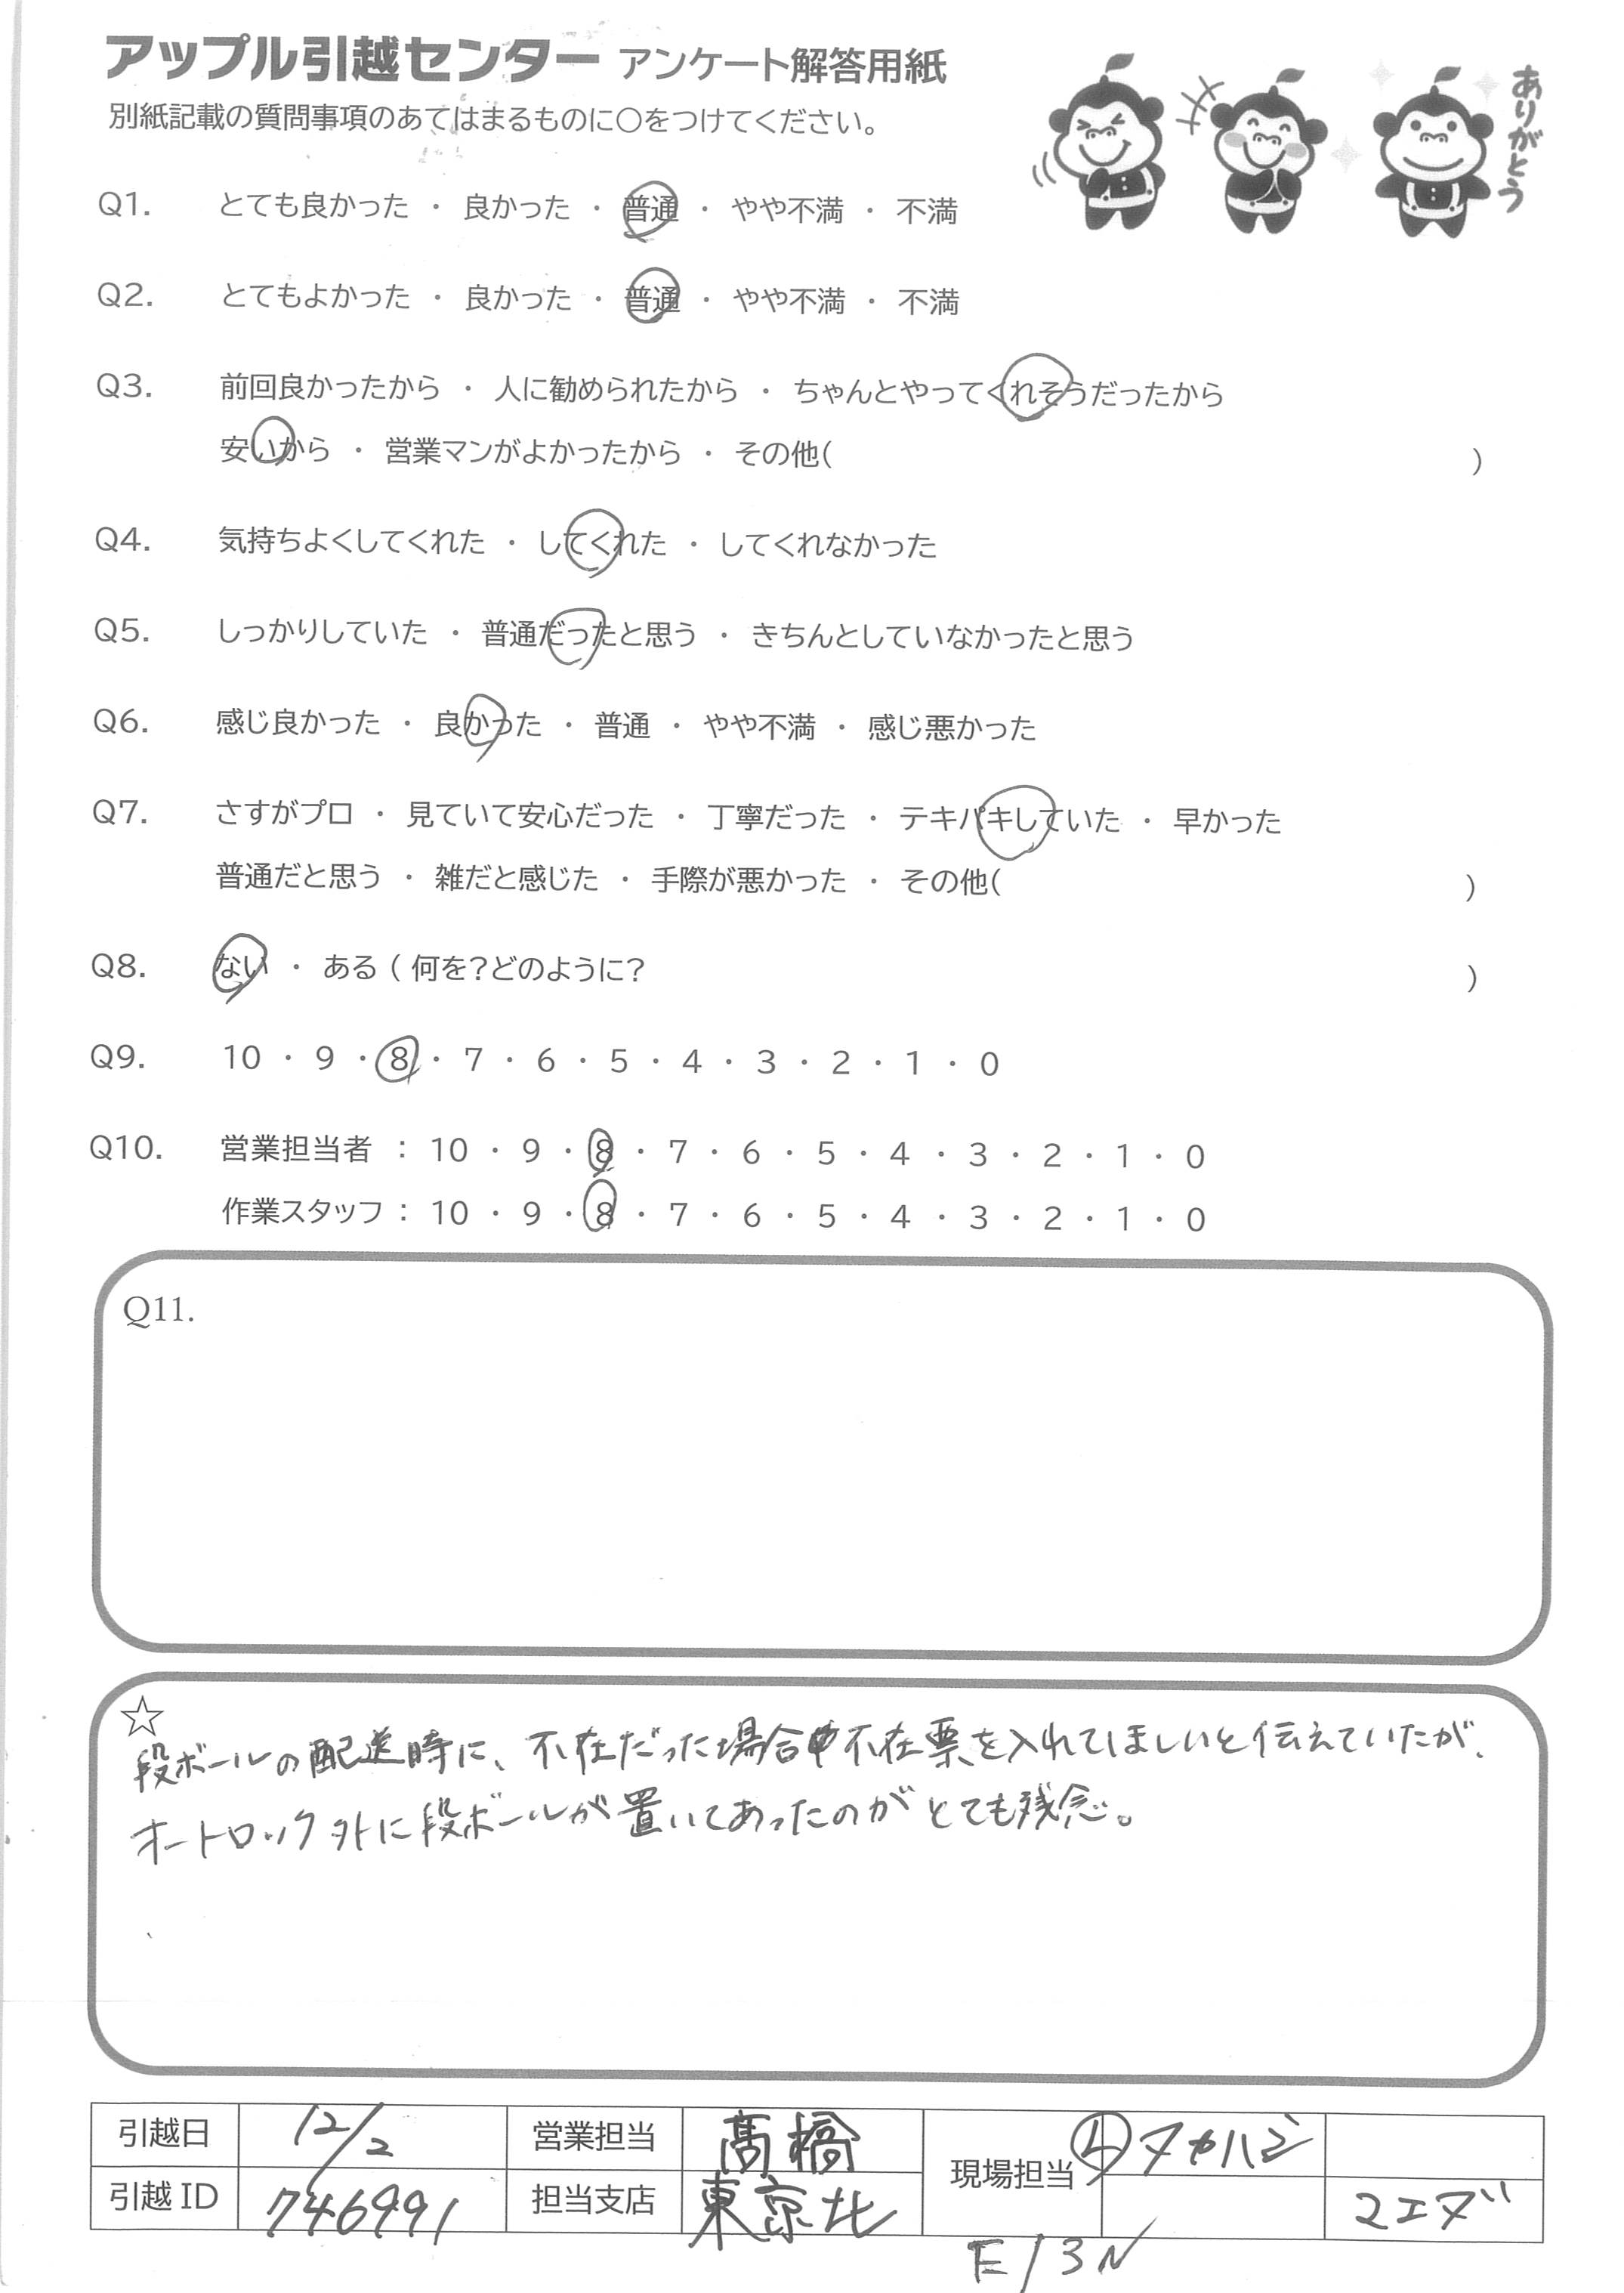 アップル引越センター アンケート解答用紙
別紙記載の質問事項のあてはまるものに〇をつけてください。
ありがとう
Q1. とても良かった ・ 良かった ・ 普通 ・ やや不満 ・ 不満
Q2. とてもよかった ・ 良かった ・ 普通 ・ やや不満 ・ 不満
Q3. 前回良かったから ・ 人に勧められたから ・ ちゃんとやってくれそうだったから
安いから ・ 営業マンがよかったから ・ その他( )
Q4. 気持ちよくしてくれた ・ してくれた ・ してくれなかった
Q5. しっかりしていた ・ 普通だったと思う ・ きちんとしていなかったと思う
Q6. 感じ良かった ・ 良かった ・ 普通 ・ やや不満 ・ 感じ悪かった
Q7. さすがプロ ・ 見ていて安心だった ・ 丁寧だった ・ テキパキしていた ・ 早かった
普通だと思う ・ 雑だと感じた ・ 手際が悪かった ・ その他( )
Q8. ない ・ ある ( 何を？どのように？ )
Q9. 10 ・ 9 ・ 8 ・ 7 ・ 6 ・ 5 ・ 4 ・ 3 ・ 2 ・ 1 ・ 0
Q10. 営業担当者 : 10 ・ 9 ・ 8 ・ 7 ・ 6 ・ 5 ・ 4 ・ 3 ・ 2 ・ 1 ・ 0
作業スタッフ : 10 ・ 9 ・ 8 ・ 7 ・ 6 ・ 5 ・ 4 ・ 3 ・ 2 ・ 1 ・ 0
Q11.
☆
段ボールの配送時に、不在だった場合不在票を入れてほしいと伝えていたが、
オートロック外に段ボールが置いてあったのがとても残念。
引越日 12/2 営業担当 髙橋 現場担当 タカハシ
引越 ID 746991 担当支店 東京北 マエダ
E/3N